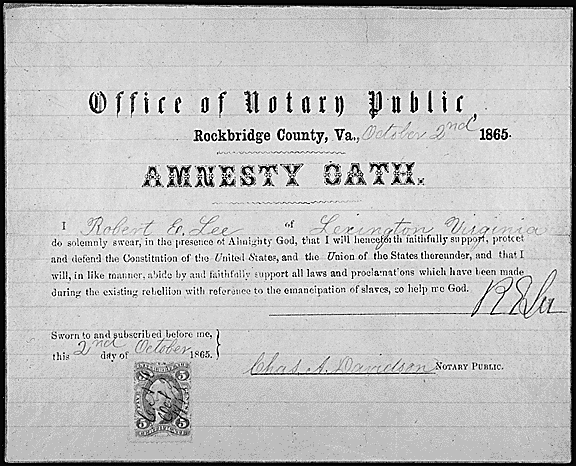 Office of Notary Public
Rockbridge County, Va., October 2nd 1865.
AMNESTY OATH.
I Robert E. Lee of Lexington Virginia
do solemnly swear, in the presence of Almighty God, that I will henceforth faithfully support, protect
and defend the Constitution of the United States, and the Union of the States thereunder, and that I
will, in like manner, abide by and faithfully support all laws and proclamations which have been made
during the existing rebellion with reference to the emancipation of slaves, so help me God.
R E Lee
Sworn to and subscribed before me,
this 2nd day of October 1865.
Chas A. Davidson NOTARY PUBLIC.
5 5
5 5
CERTIFICATE